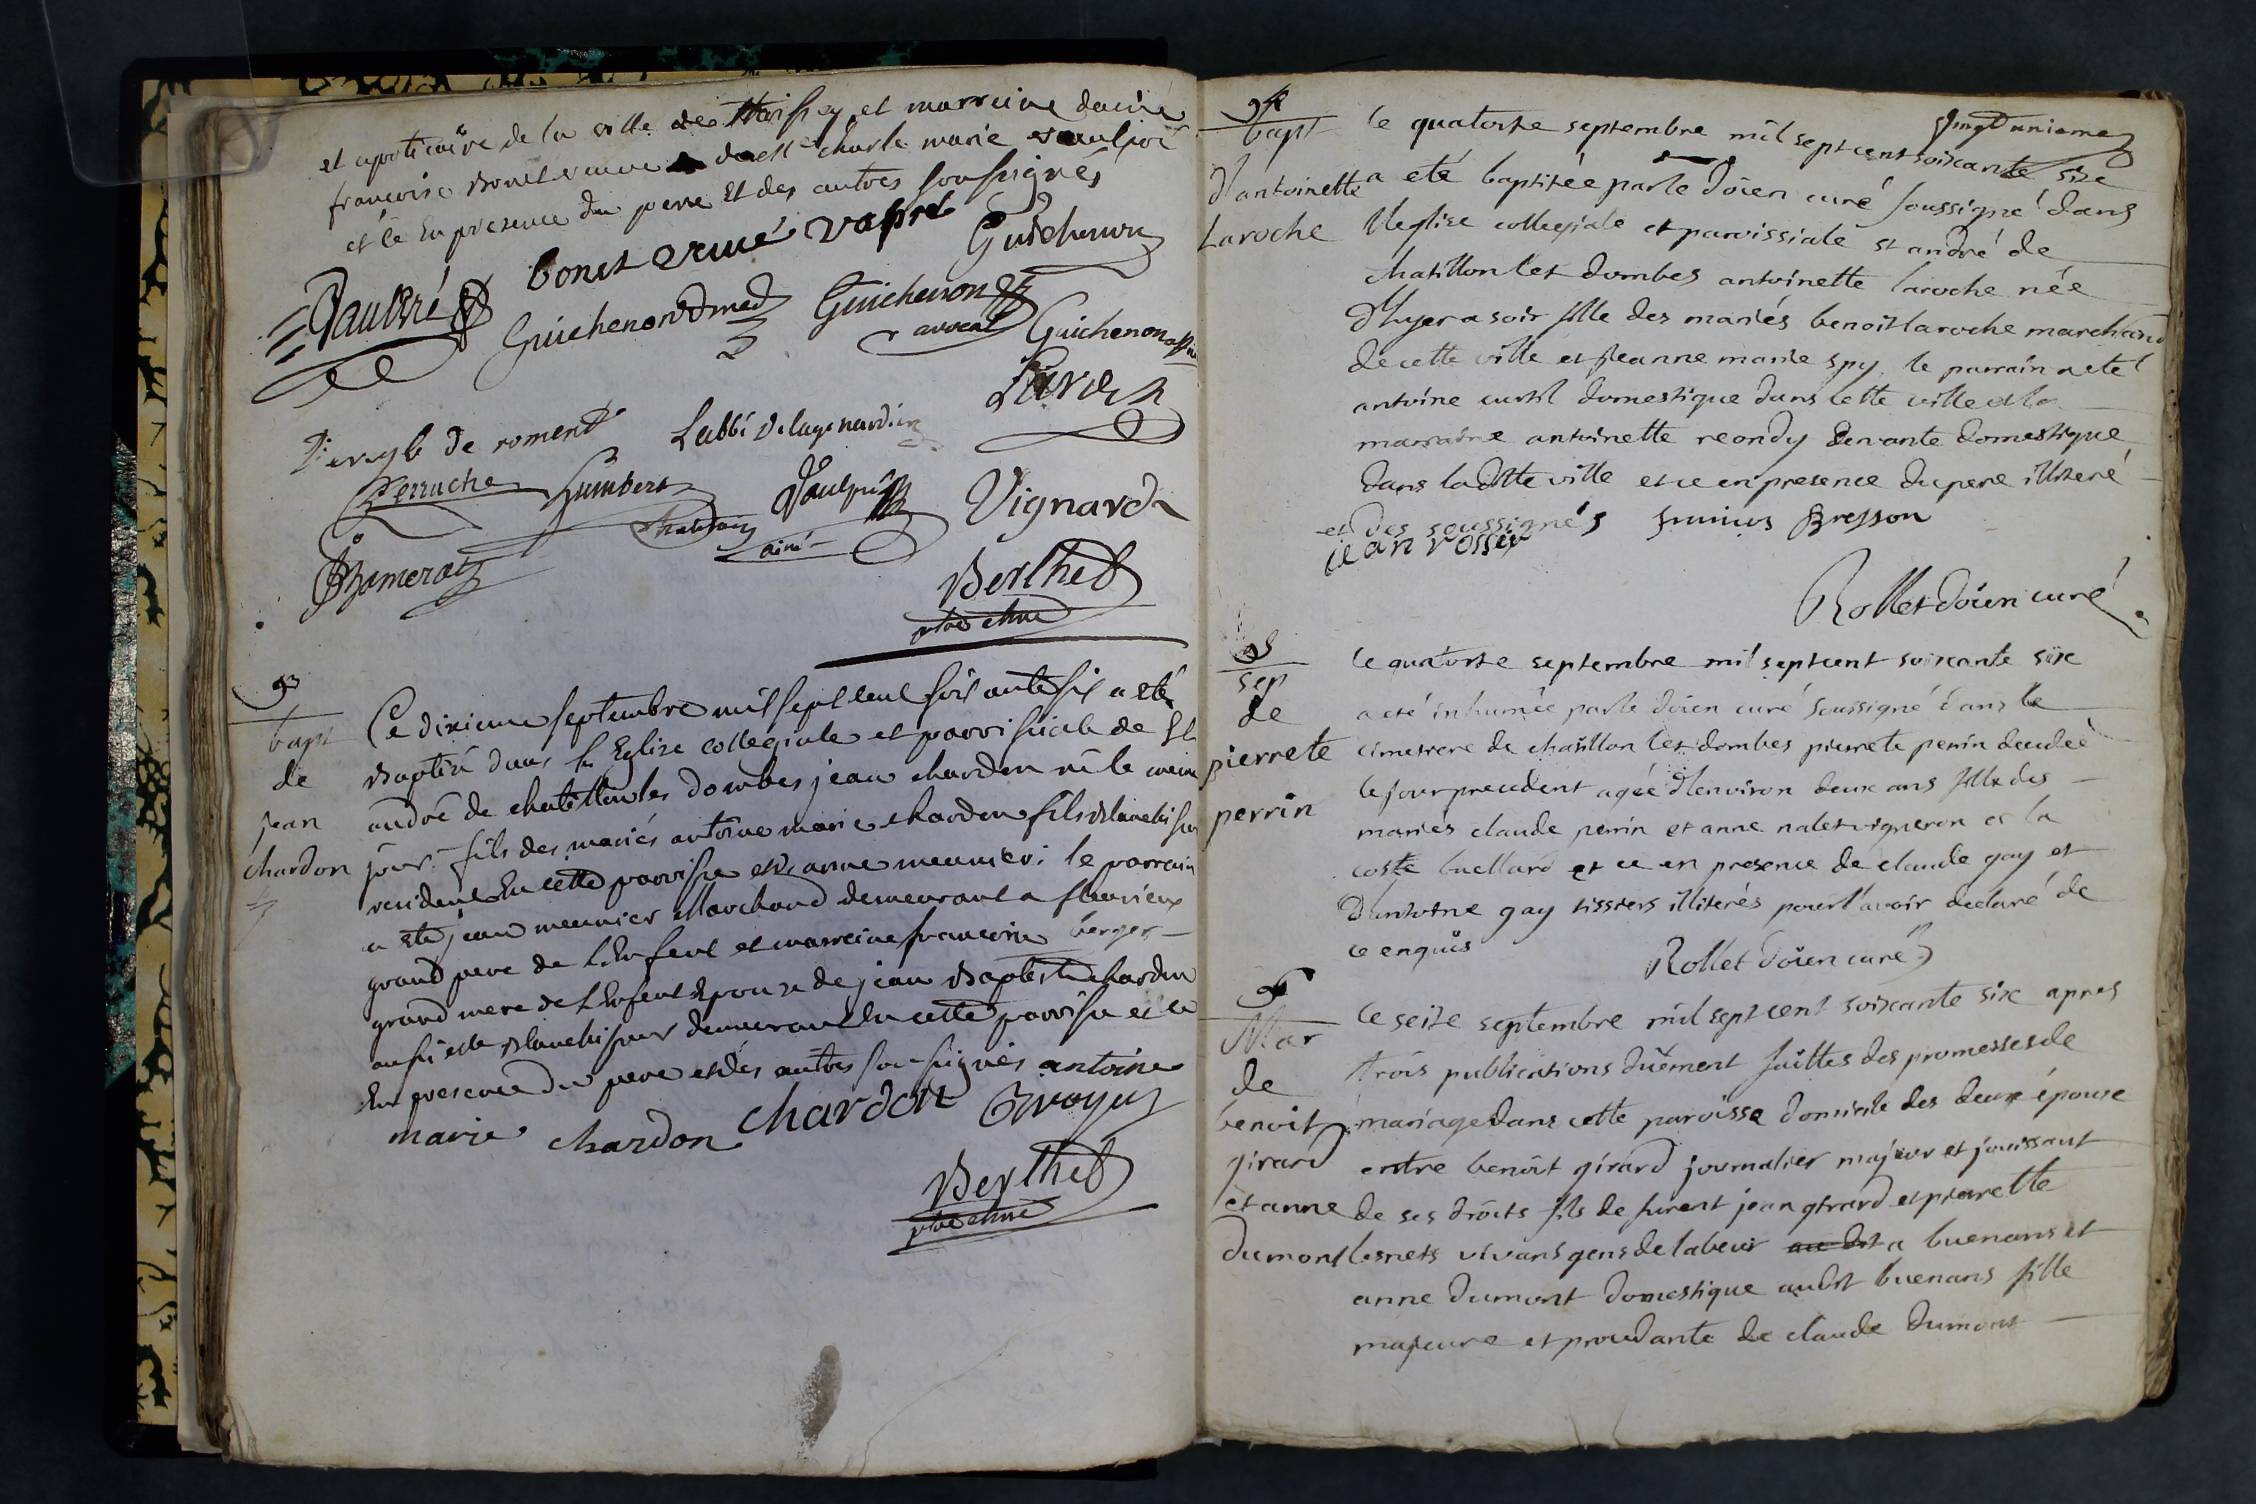 et apoticaire de la ville de et marreine
francoise charle marie
et ce En presence du pere Et des autres soussignés
bonet Guichenon
Guichenon Dmed Guichenon avocat Guichenon
de roment Labbé
Perruche Humbert Vignard
ainé
Berthet
93
bapt
de
jean
chardon
Ce dixieme septembre mil sept cent soixante six a eté
Baptisé dans L'Eglise collegiale et parroissiale de St
andré de chatillon les dombes jean chardon né le meme
jour fils des mariés antoine marie chardon fils Blanchisseur
resident En cette parroisse et anne meunier : le parrain
a eté jean meunier Marchand demeurant a fleurieux
grand pere de L'Enfent et marreine francoise berger
grand mere de L'Enfent Epouze de jean Baptiste chardon
aussi Blanchisseur demeurant En cette parroisse et ce
En presence du pere et des autres soussignés antoine
marie chardon chardon
Berthet
vingt unieme
94
bapt
d'antoinette
Laroche
le quatorse septembre mil sept cent soixante six
a eté baptisée par le Doien curé soussigné dans
l'eglise collegiale et paroissiale st andré de
chatillon les dombes antoinette laroche née
d'hyer a soir fille des mariés benoit laroche marchand
de cette ville et jeanne marie spy. le parrain a eté
antoine domestique dans cette ville et la
marraine antoinette reondy servante domestique
dans la ditte ville et ce en presence du pere illiteré
et des soussignés Bresson
jean
Rollet Doien curé
95
sep
de
pierrete
perrin
le quatorse septembre mil sept cent soixante six
a eté inhumée par le Doien curé soussigné dans le
cimetiere de chatillon les dombes pierrete perrin decedée
le jour precedent agée d'environ deux ans fille des
mariés claude perrin et anne nalet vigneron a la
coste buellard et ce en presence de claude gay et
d'antoine gay tissiers illiterés pour l'avoir declaré de
ce enquis
Rollet Doien curé
96
Mar
de
benoit
girard
et anne
Dumont
le seise septembre mil sept cent soixante six apres
trois publications duëment faittes des promesses de
mariage dans cette paroisse domicile des deux épouse
entre benoit girard journalier majeur et jouissant
de ses droits fils de furent jean girard et pierrette
lesnets vivans gens de labeur au dit a buenans et
anne Dumont Domestique audit buenans fille
majeure et procedante de claude Dumont